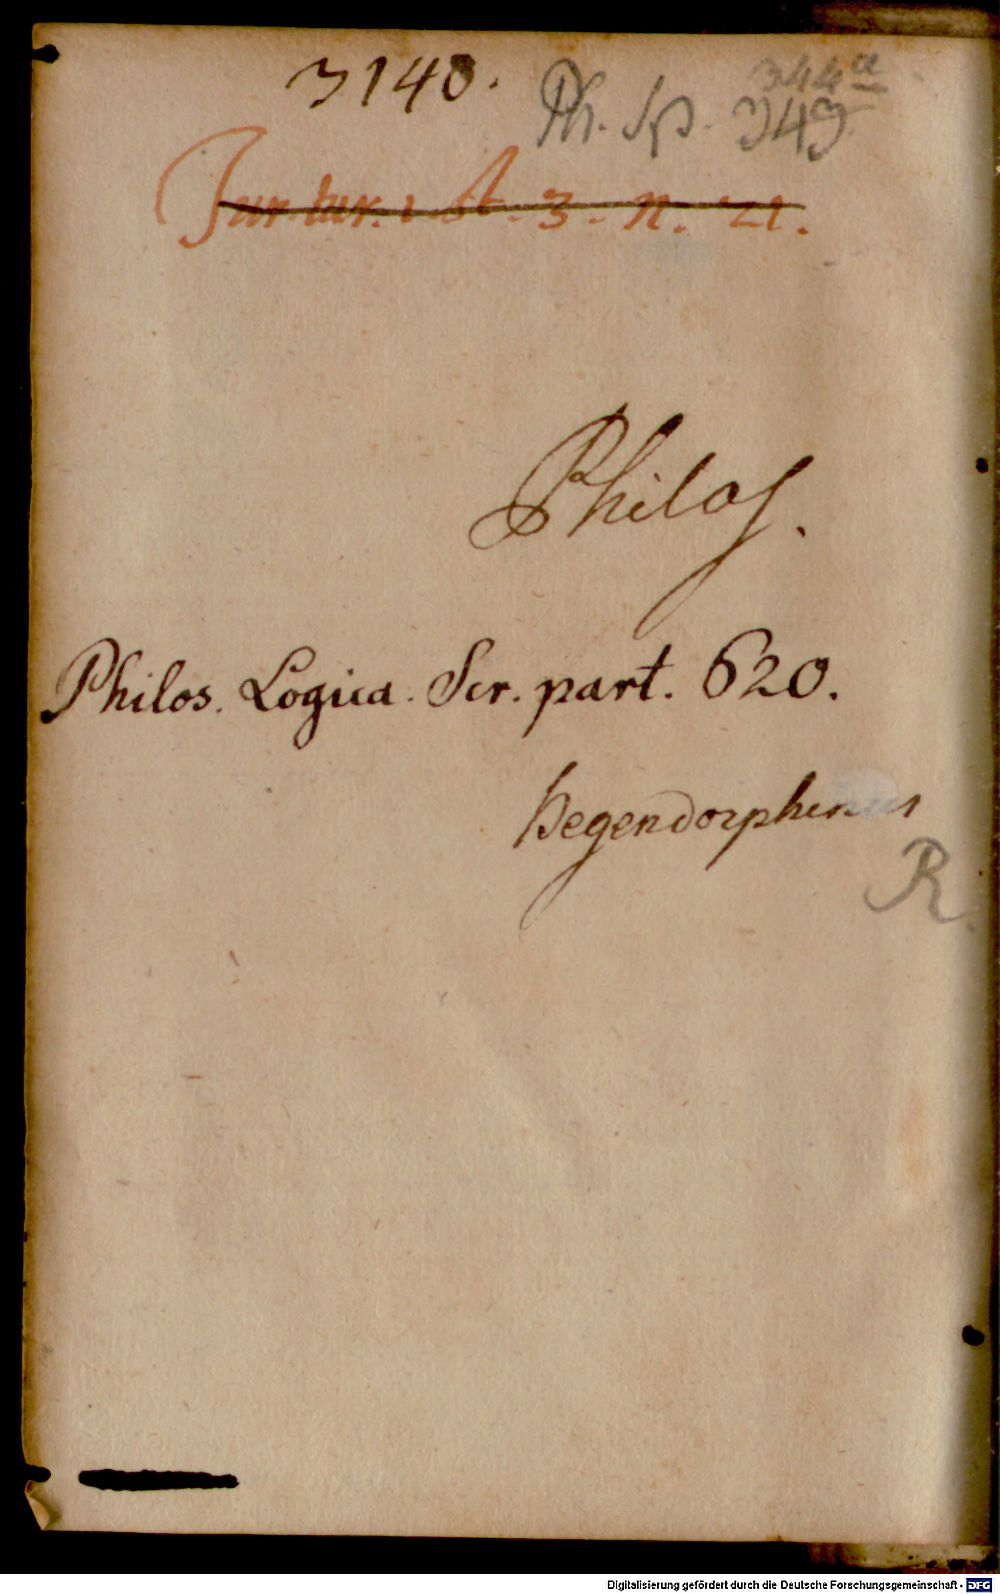 3140.
344a
Ph. Sp. 343
A. 3. n. 21.
Philos.
Philos. Logica. Scr. part. 620.
Hegendorphinus
R.
Digitalisierung gefördert durch die Deutsche Forschungsgemeinschaft - DFG